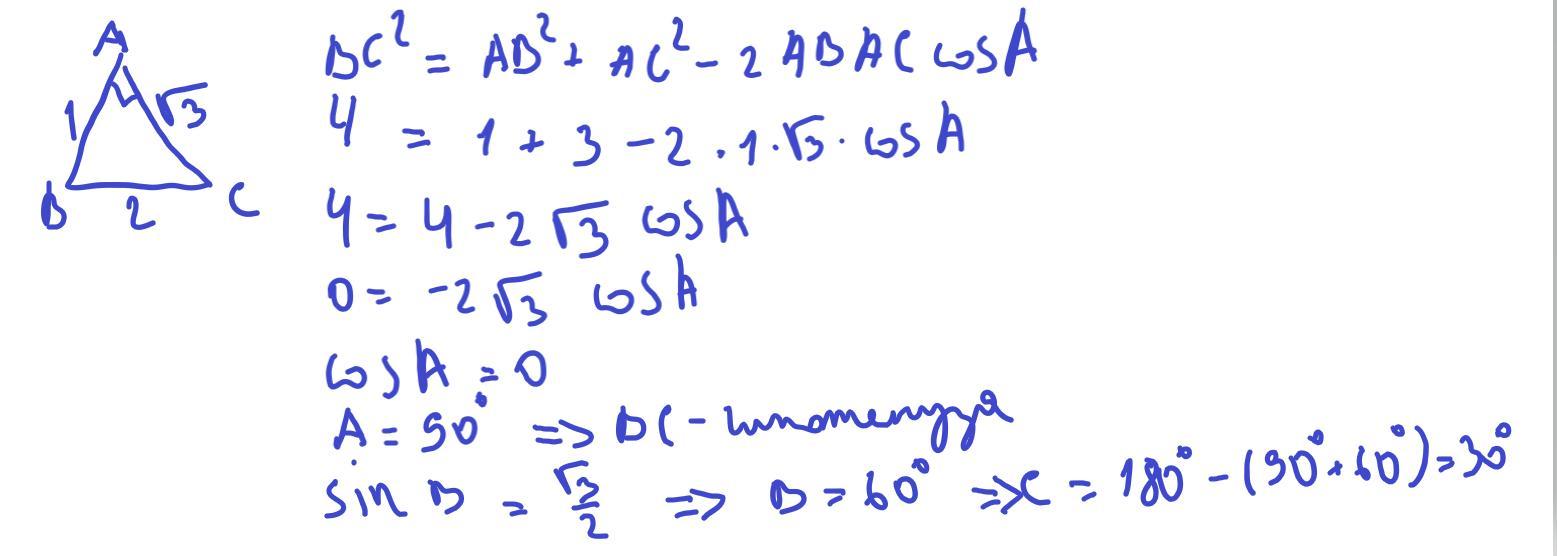 A
1
√3
B
2
C
BC² = AB² + AC² - 2 AB AC cos A
4 = 1 + 3 - 2 · 1 · √3 · cos A
4 = 4 - 2 √3 cos A
0 = -2 √3 cos A
cos A = 0
A = 90° => BC - гипотенуза
sin B = √3/2 => B = 60° => C = 180° - (90° + 60°) = 30°